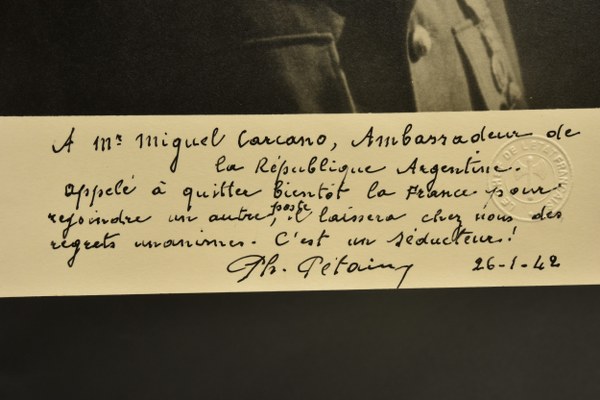 A Mr Miguel Carcano, Ambassadeur de
la République Argentine.
appelé à quitter bientôt la France pour
rejoindre un autre poste, il laissera chez nous des
regrets unanimes. C'est un séducteur!
Ph. Pétain 26-1-42